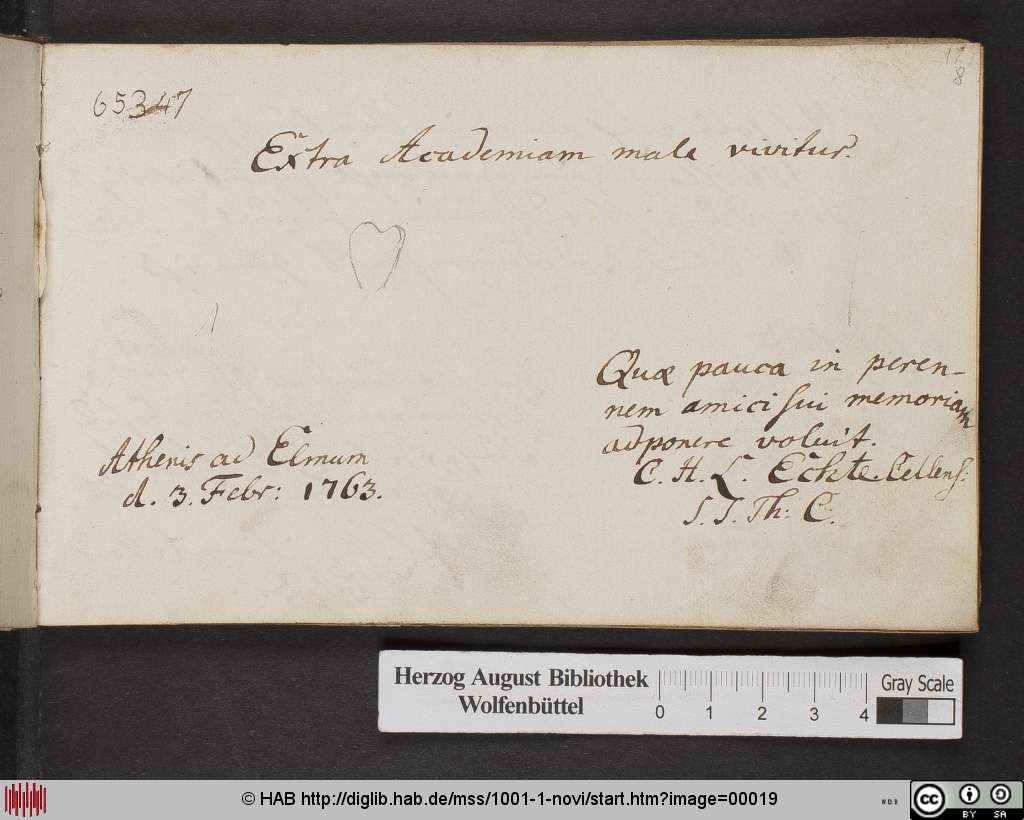 65347
8
Extra Academiam male vivitur.
Quæ pauca in peren-
nem amici sui memoriam
adponere voluit.
C. H. L. Echte. Cellens:
S. S. Th: C.
Athenis ad Elmum
d. 3. Febr: 1763.
Herzog August Bibliothek
Wolfenbüttel
0 1 2 3 4
Gray Scale
© HAB http://diglib.hab.de/mss/1001-1-novi/start.htm?image=00019
cc BY SA